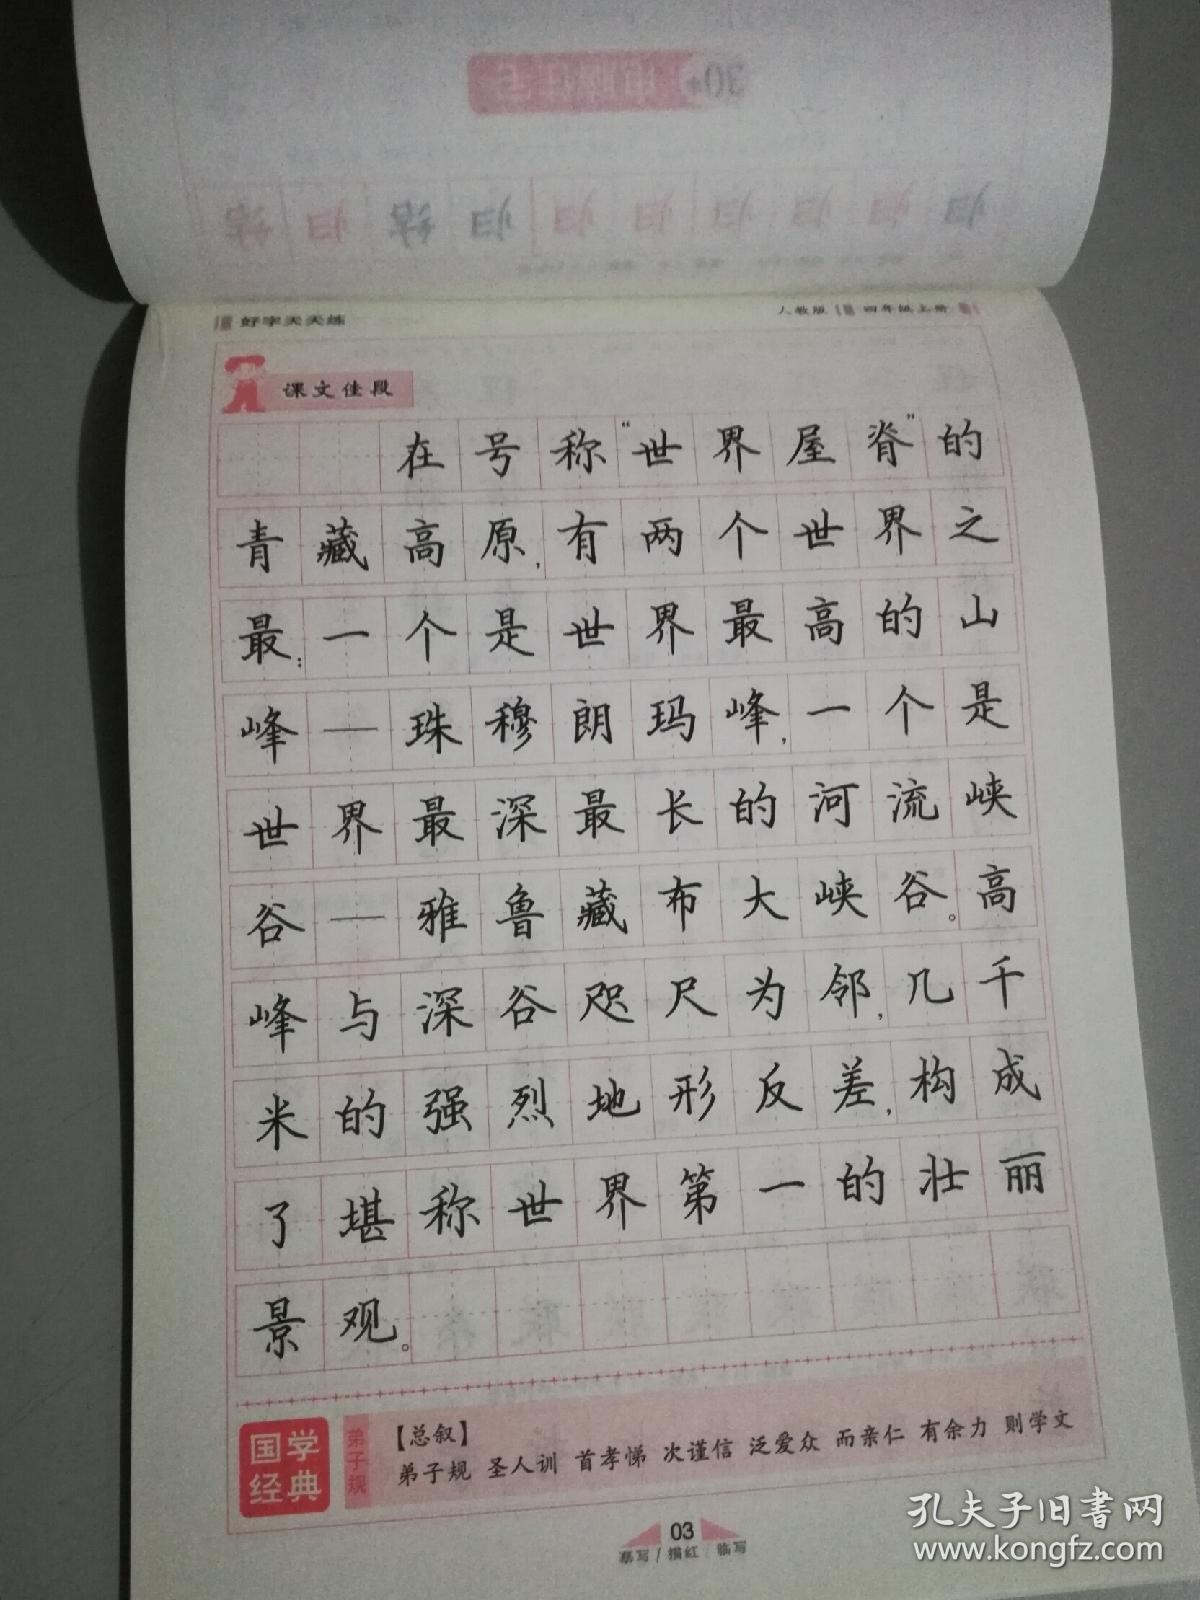 好字天天练
人教版 四年级上册
课文佳段
在号称“世界屋脊”的
青藏高原,有两个世界之
最:一个是世界最高的山
峰—珠穆朗玛峰,一个是
世界最深最长的河流峡
谷—雅鲁藏布大峡谷。高
峰与深谷咫尺为邻,几千
米的强烈地形反差,构成
了堪称世界第一的壮丽
景观。
国学经典
弟子规
【总叙】
弟子规 圣人训 首孝悌 次谨信 泛爱众 而亲仁 有余力 则学文
03
摹写/描红/临写
孔夫子旧书网
www.kongfz.com